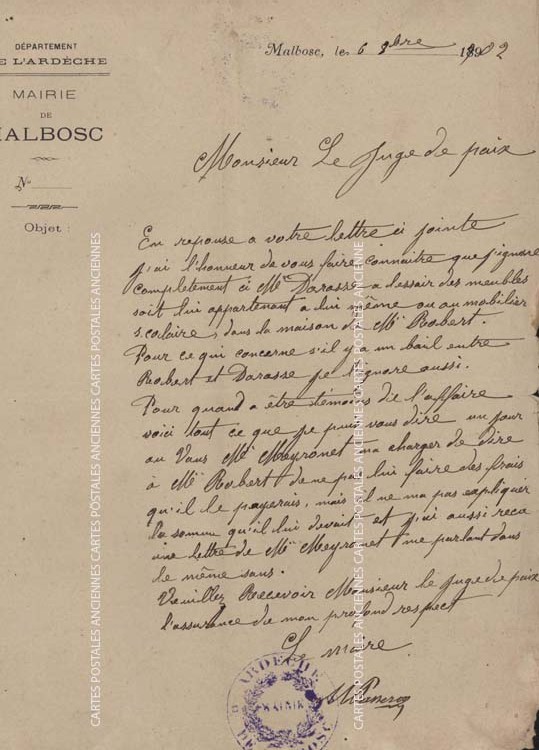 DÉPARTEMENT
DE L'ARDÈCHE
MAIRIE
DE
MALBOSC
N°
Objet :
Malbosc, le 6 9bre 1902
Monsieur Le Juge de paix
En reponse a votre lettre ci jointe
j'ai l'honneur de vous faire connaitre que j'ignore
completement ci Mr Darasse a des meubles
soit lui appartenant a lui même ou au mobilier
scolaire, dans la maison de Mr Robert.
Pour ce qui concerne s'il y a un bail entre
Robert et Darasse je l'ignore aussi.
Pour quand a être témoins de l'affaire
voici tout ce que je puis vous dire un jour
au Vans Mr Meyronet ma charger de dire
à Mr Robert de ne pas lui faire des frais
qu'il le payerais, mais il ne ma pas expliquer
la somme qu'il lui devait et j'ai aussi recu
une lettre de Mr Meyronet me parlant dans
le même sans.
Veuillez Recevoir Monsieur le Juge de paix
l'assurance de mon profond respect
Le maire
ARDÈCHE
MAIRIE
CARTES POSTALES ANCIENNES CARTES POSTALES ANCIENNES CARTES POSTALES ANCIENNES
CARTES POSTALES ANCIENNES CARTES POSTALES ANCIENNES CARTES POSTALES ANCIENNES